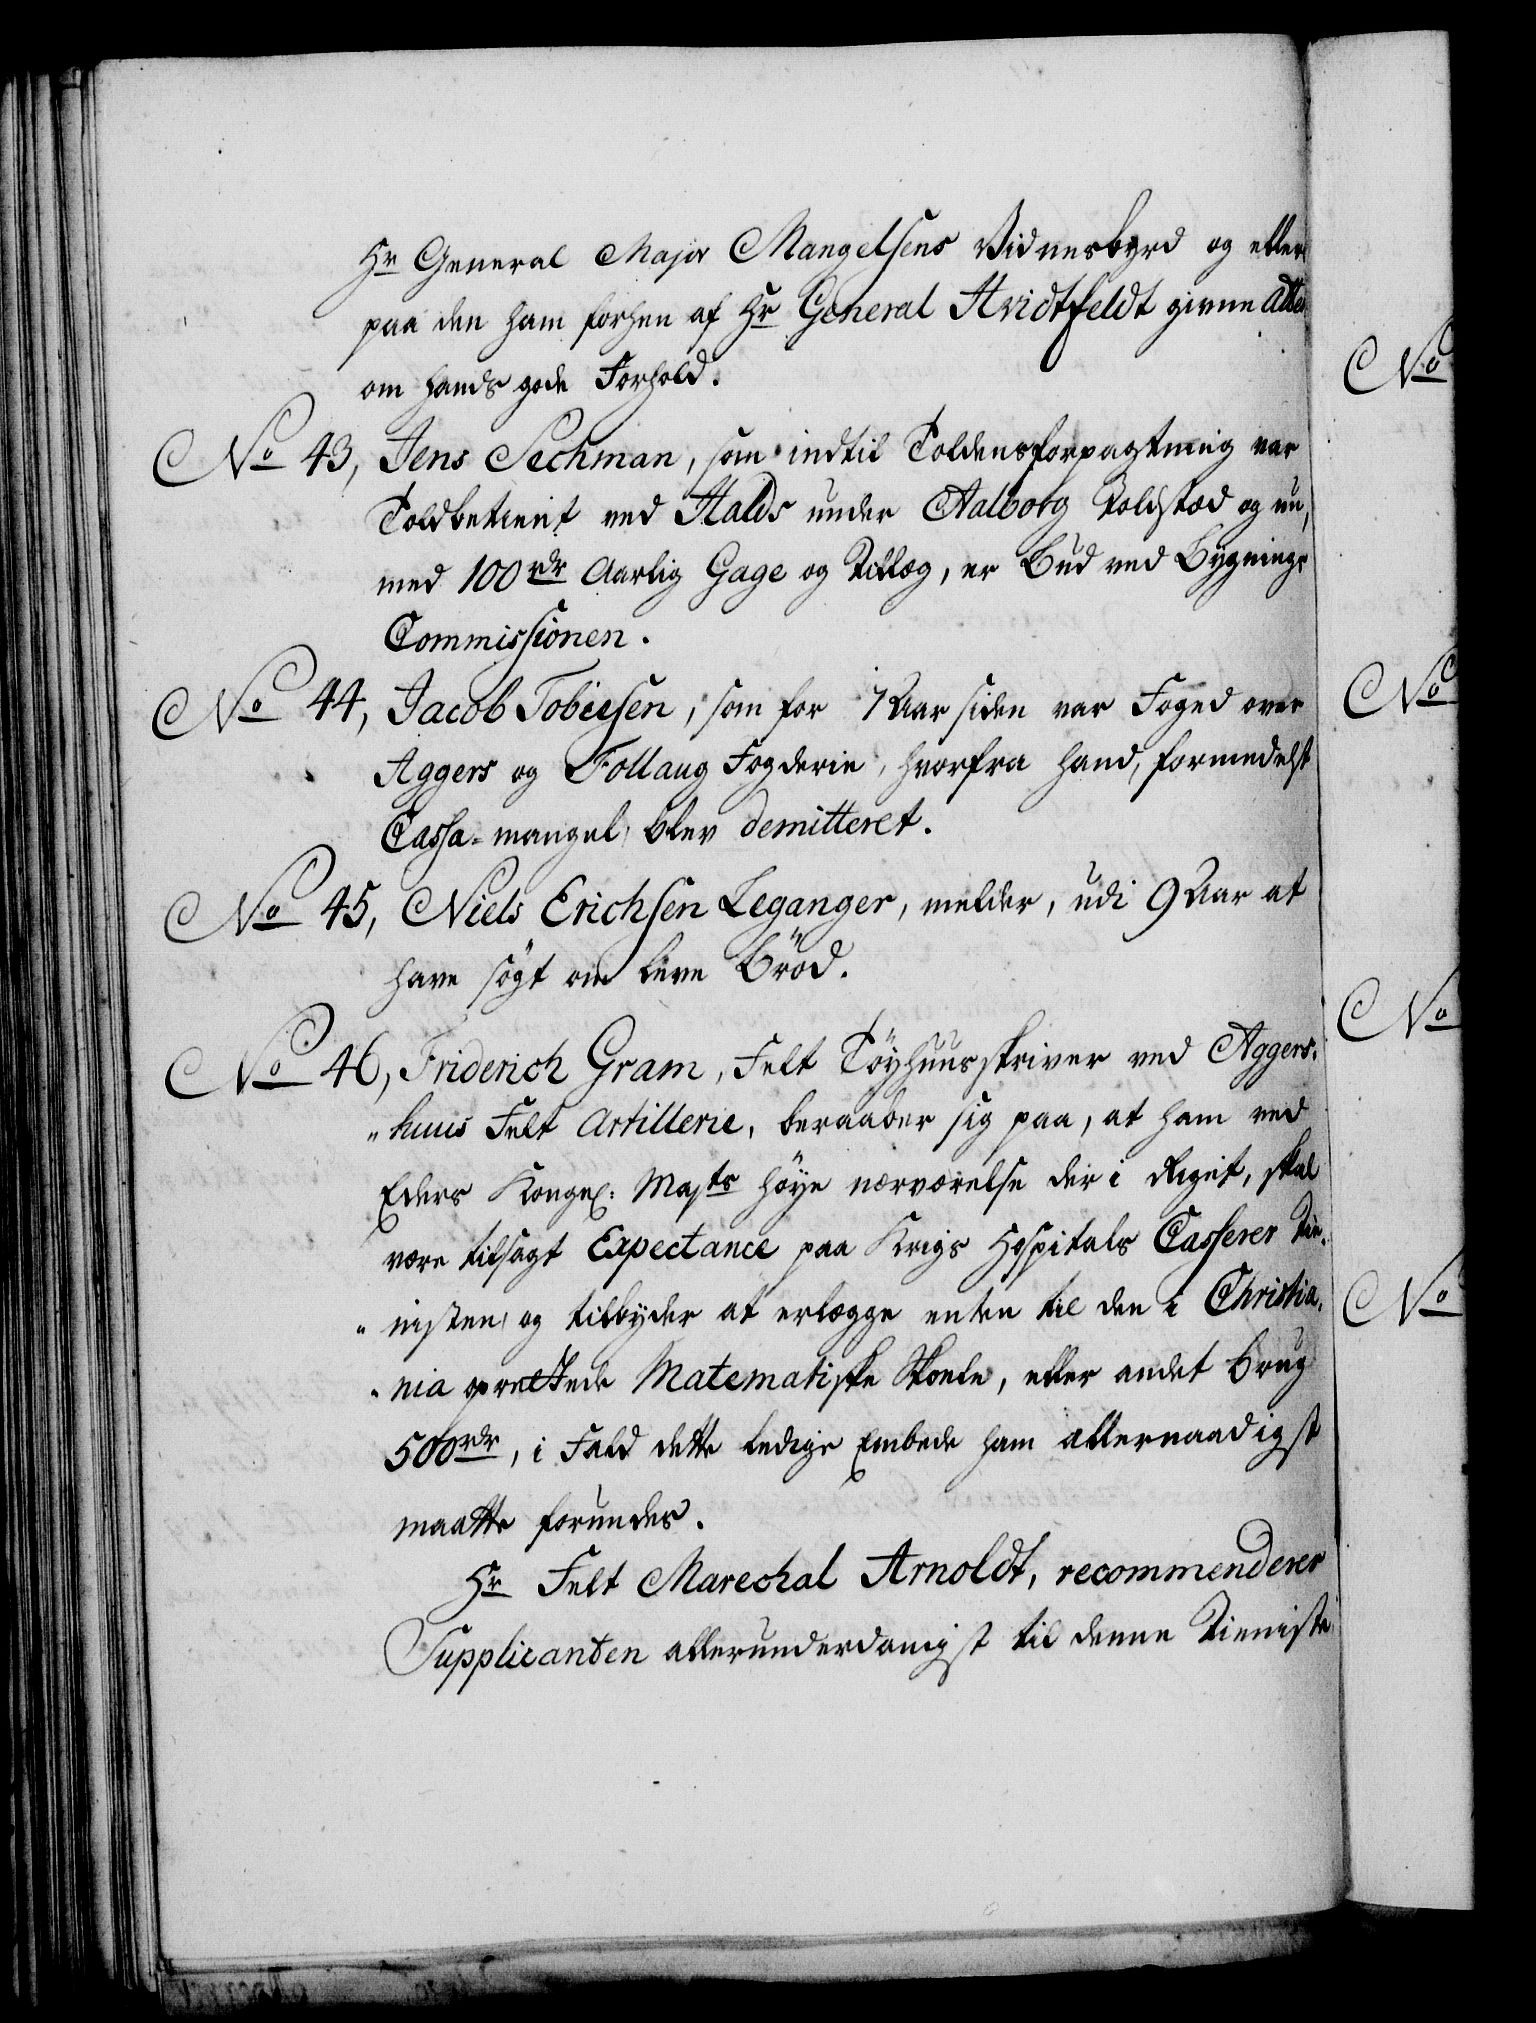 Hr General Major Mangelsens Vidnesbyrd og efter
paa den ham forhen af Hr General Hvidtfeldt givne Attest
om hands gode Forhold.
No 43, Jens Sechman, som indtil Toldensforpagtning var
Toldbetient ved Hals under Aalborg Toldsted og nu,
med 100 rdr Aarlig Gage og Tillæg, er Bud ved Bygnings
Commissionen.
No 44, Jacob Tobiesen, som for 7 Aar siden var Foged over
Aggers og Follaug Fogderie, hvorfra hand, formedelst
Cassa-mangel, blev demitteret.
No 45, Niels Erichsen Leganger, melder, udi 9 Aar at
have søgt om leve Brød.
No 46, Friderich Gram, Felt Tøyhuusskriver ved Aggers-
"huus Felt Artillerie, beraaber sig paa, at ham ved
Eders Kongel: Majts høye nærværelse der i Riget, skal
være tilsagt Expectance paa Krigs Hospitals Casserer Tie-
"nisten, og tilbyder at erlægge enten til den i Christia-
"nia oprettede Matematiske Skoele, eller andet brug
500 rdr, i Fald dette ledige Embede ham allernaadigst
maatte forundes.
Hr Felt Marechal Arnoldt, recommenderer
Supplicanten allerunderdanigst til denne Tieniste
No
No
No
No